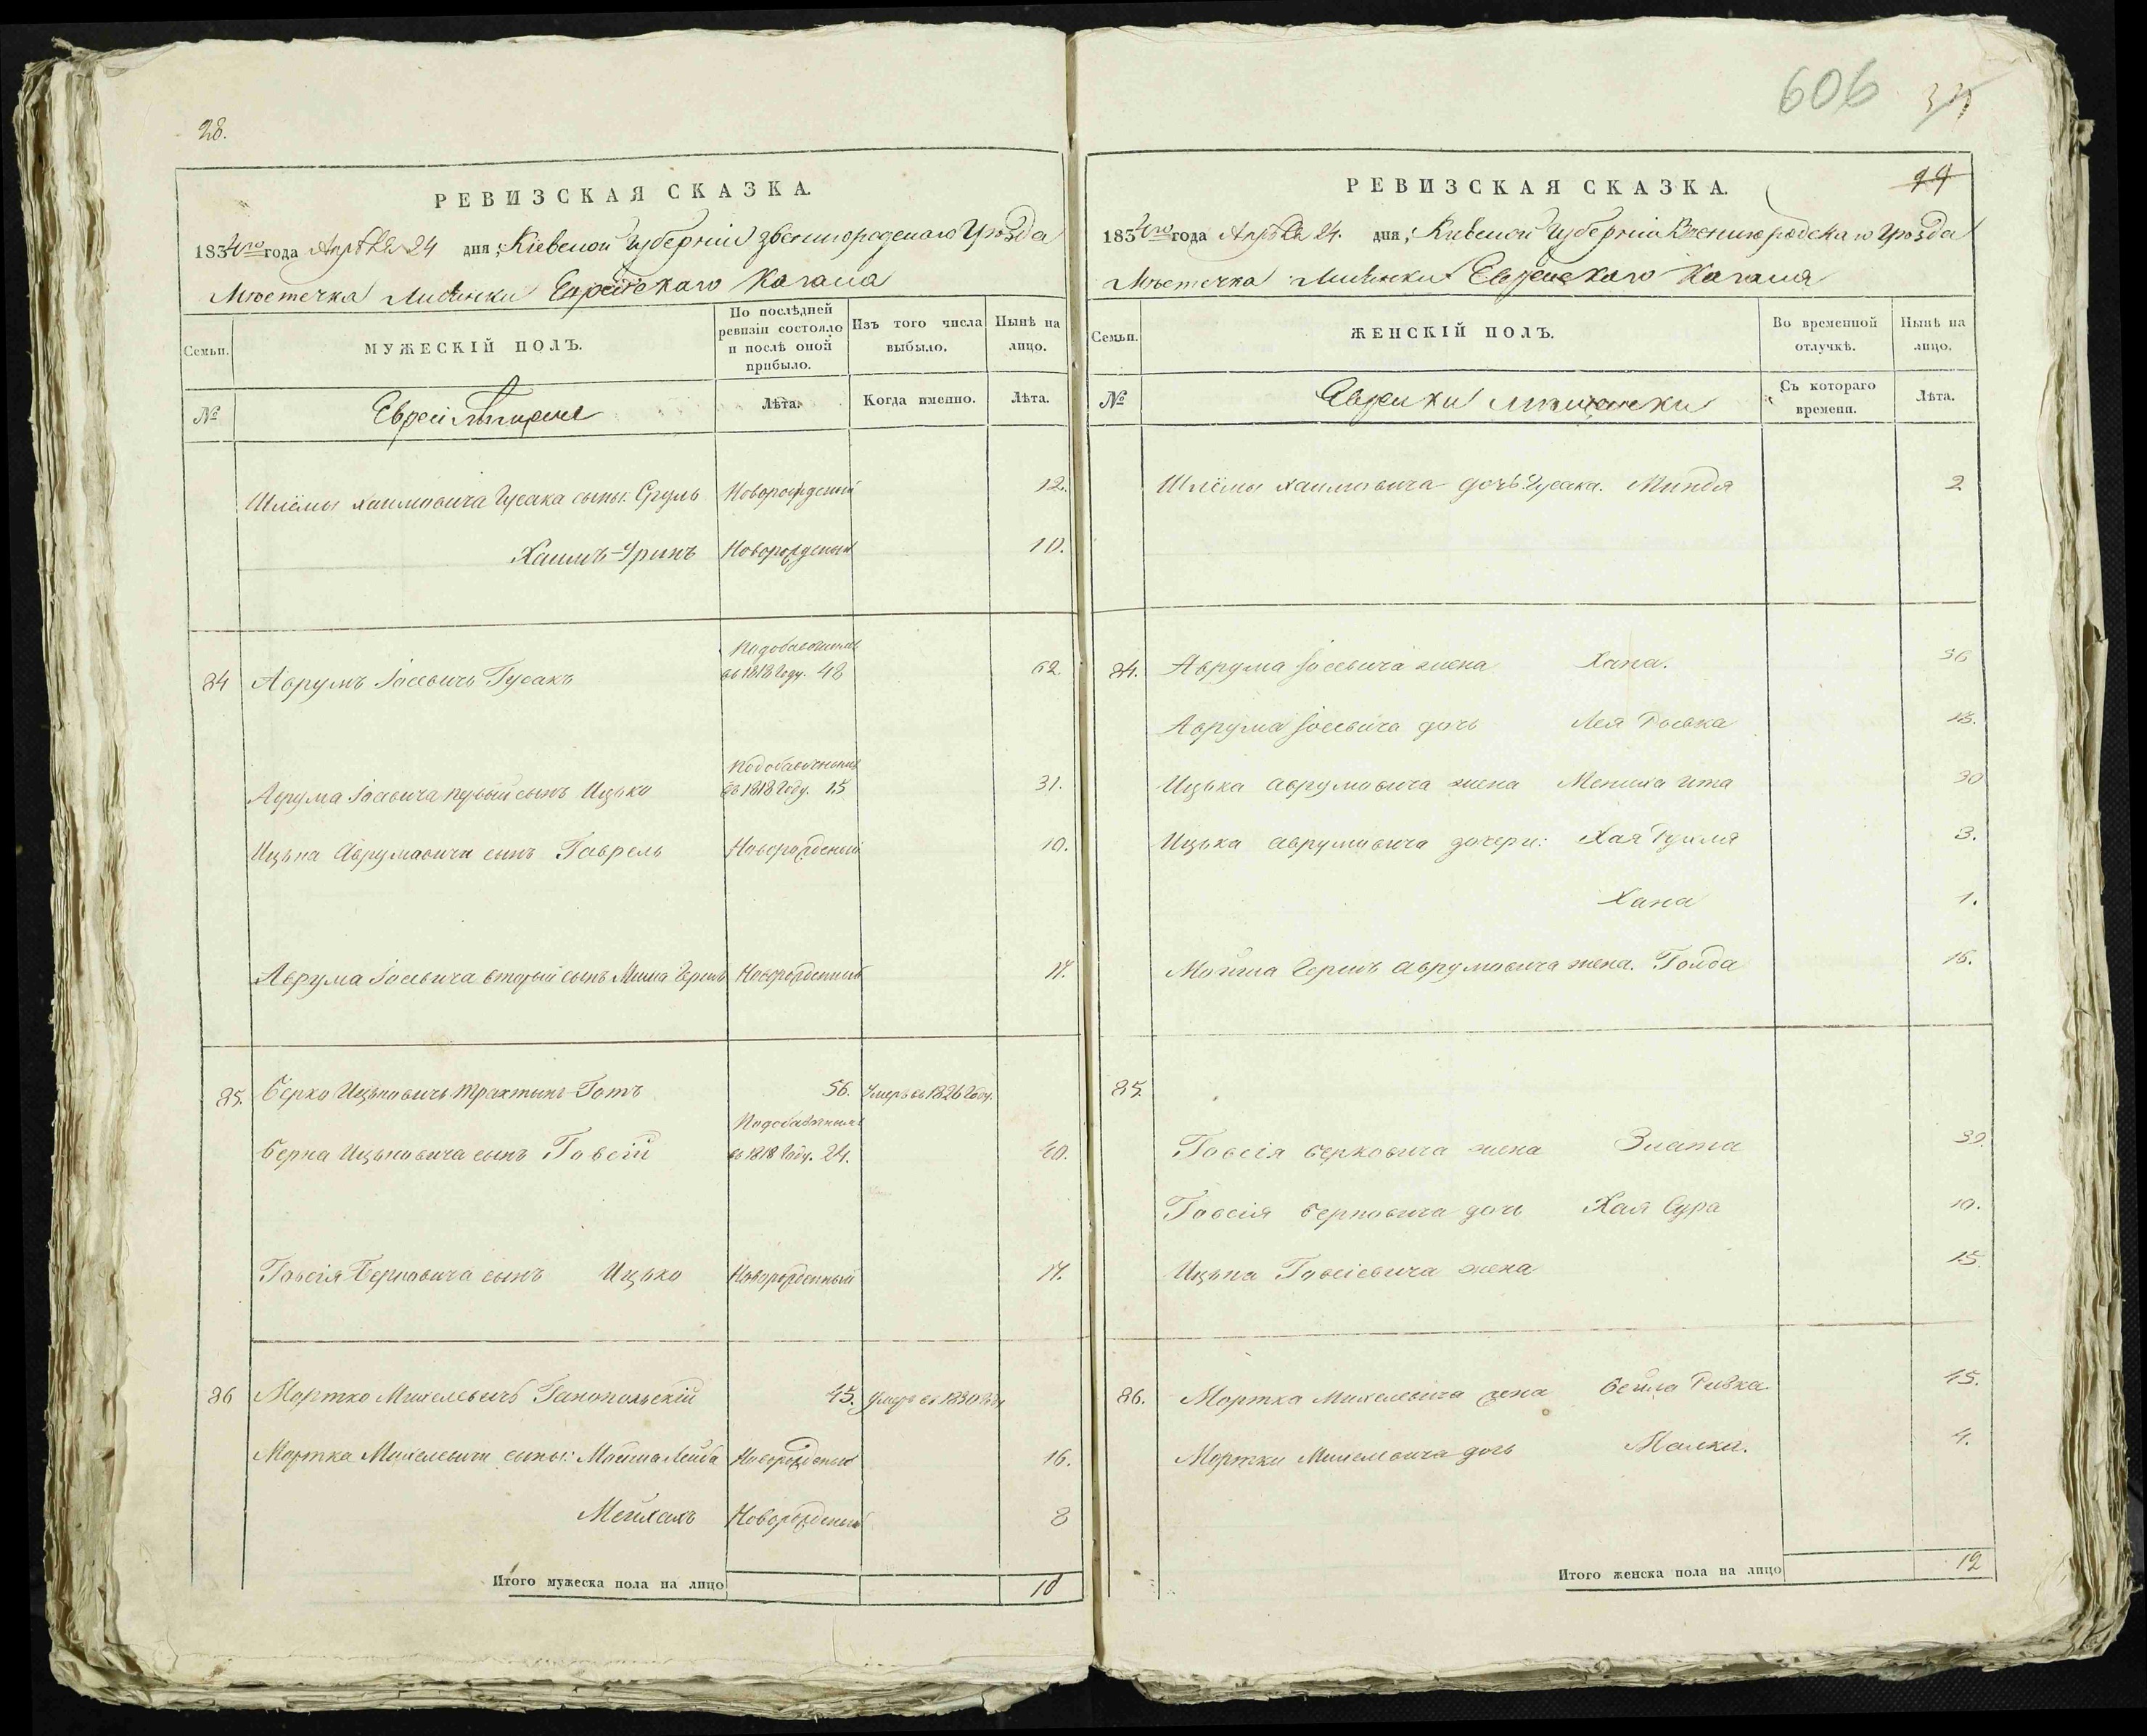 28.
РЕВИЗСКАЯ СКАЗКА.
1834го года Апрѣля 24 дня, Кіевской Губерніи Звенигородскаго Уѣзда
Мѣстечка Лисянки Еврейскаго Кагала
Семьи.
МУЖЕСКІЙ ПОЛЪ.
По послѣдней ревизіи состояло и послѣ оной прибыло.
Изъ того числа выбыло.
Нынѣ на лицо.
№
Евреи Мещане
Лѣта.
Когда именно.
Лѣта.
Шлёмы Хаимовича Гусака сыны: Сруль Новорожденый 12.
Хаимъ-Уринъ Новорожденый 10.
Подобавочными
84 Аврумъ Іосевичъ Гусакъ въ 1818 Году. 48 62
Подобавочными
Аврума Іосевича первый сынъ Ицько въ 1818 Году. 15 31.
Ицька Аврумовича сынъ Гаврель Новорожденый 10.
Аврума Іосевича вторый сынъ Мошка Гершъ Новорожденный 17.
85. Берко Ицьковичъ Трахтын-Готъ 56. Умеръ въ 1826 Году.
Подобавочными
Берка Ицьковича сынъ Говсій въ 1818 Году. 24. 40.
Говсія Берковича сынъ Ицько Новорожденный 17.
86 Мортко Михелевичъ Ганопольскій 45. Умеръ въ 1830 Году
Мортка Михелевича сыны: Мойша Лейба Новорожденый 16.
Мейлахъ Новорожденый 8
Итого мужеска пола на лицо 10
606
РЕВИЗСКАЯ СКАЗКА.
1834го года Апрѣля 24. дня, Кіевской Губерніи Звенигородскаго Уѣзда
Мѣстечка Лисянки Еврейскаго Кагала
Семьи.
ЖЕНСКІЙ ПОЛЪ.
Во временной отлучкѣ.
Нынѣ на лицо.
№
Еврейки мѣщанки
Съ котораго времени.
Лѣта.
Шлёмы Хаимовича дочь Гусака. Миндя 2
84. Аврума Іосевича жена Хана. 36
Аврума Іосевича дочь Лея Досвка 13.
Ицька Аврумовича жена Мениха Ита 30
Ицька Аврумовича дочери: Хая Рухля 3.
Хана 1.
Мойша Герша Аврумовича жена. Голда 16.
85.
Говсія Берковича жена Злата 39.
Говсія Берковича дочь Хая Сура 10.
Ицька Говсіевича жена 15.
86. Мортка Михелевича жена Бейла Ривка. 45.
Мортки Михелевича дочь Малка. 4.
Итого женска пола на лицо 12